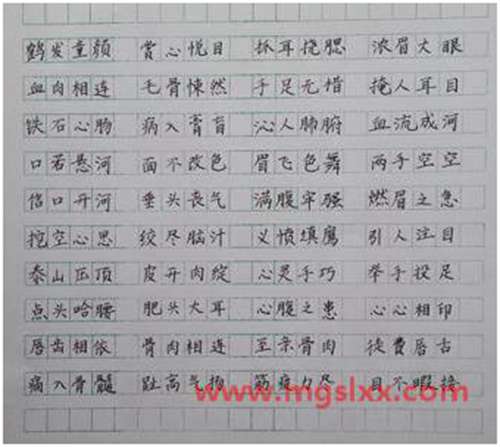 鹤发童颜 赏心悦目 抓耳挠腮 浓眉大眼
血肉相连 毛骨悚然 手足无措 掩人耳目
铁石心肠 病入膏肓 沁人肺腑 血流成河
口若悬河 面不改色 眉飞色舞 两手空空
信口开河 垂头丧气 满腹牢骚 燃眉之急
挖空心思 绞尽脑汁 义愤填膺 引人注目
泰山压顶 皮开肉绽 心灵手巧 举手投足
点头哈腰 肥头大耳 心腹之患 心心相印
唇齿相依 骨肉相连 至亲骨肉 徒费唇舌
病入骨髓 趾高气扬 筋疲力尽 目不暇接
www.mgslxx.com